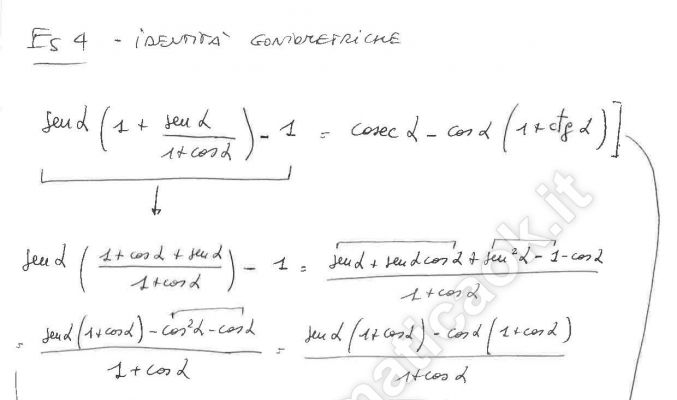 Es 4 - IDENTITÀ GONIOMETRICHE
sen α (1 + sen α / (1 + cos α)) - 1 = cosec α - cos α (1 + ctg α)]
sen α ((1 + cos α + sen α) / (1 + cos α)) - 1 = (sen α + sen α cos α + sen² α - 1 - cos α) / (1 + cos α)
= (sen α (1 + cos α) - cos² α - cos α) / (1 + cos α) = (sen α (1 + cos α) - cos α (1 + cos α)) / (1 + cos α)
maticaok.it